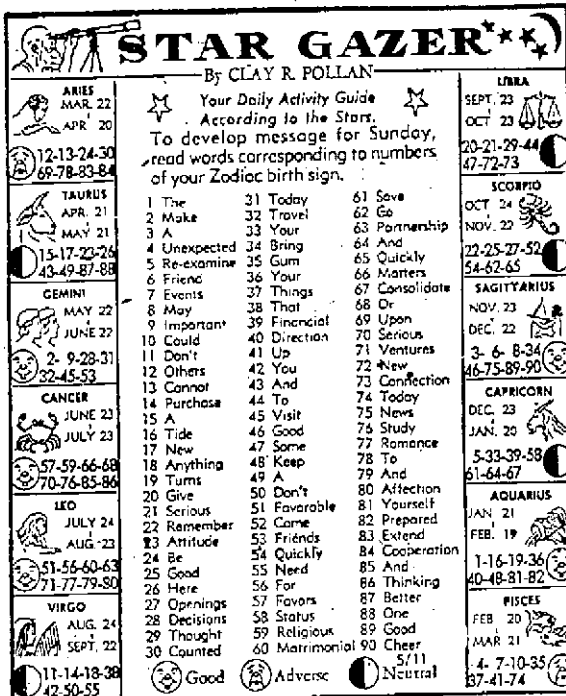 STAR GAZER
By CLAY R. POLLAN
ARIES
MAR. 22
APR. 20
12-13-24-30
69-78-83-84
TAURUS
APR. 21
MAY 21
15-17-23-26
43-49-87-88
GEMINI
MAY 22
JUNE 22
2- 9-28-31
32-45-53
CANCER
JUNE 23
JULY 23
57-59-66-68
70-76-85-86
LEO
JULY 24
AUG. 23
51-56-60-63
71-77-79-80
VIRGO
AUG. 24
SEPT. 22
11-14-18-38
42-50-55
Your Daily Activity Guide
According to the Stars.
To develop message for Sunday,
read words corresponding to numbers
of your Zodiac birth sign.
1 The
2 Make
3 A
4 Unexpected
5 Re-examine
6 Friend
7 Events
8 May
9 Important
10 Could
11 Don't
12 Others
13 Cannot
14 Purchase
15 A
16 Tide
17 New
18 Anything
19 Turns
20 Give
21 Serious
22 Remember
23 Attitude
24 Be
25 Good
26 Here
27 Openings
28 Decisions
29 Thought
30 Counted
31 Today
32 Travel
33 Your
34 Bring
35 Gum
36 Your
37 Things
38 That
39 Financial
40 Direction
41 Up
42 You
43 And
44 To
45 Visit
46 Good
47 Some
48 Keep
49 A
50 Don't
51 Favorable
52 Come
53 Friends
54 Quickly
55 Need
56 For
57 Favors
58 Status
59 Religious
60 Matrimonial
61 Save
62 Go
63 Partnership
64 And
65 Quickly
66 Matters
67 Consolidate
68 Or
69 Upon
70 Serious
71 Ventures
72 New
73 Connection
74 Today
75 News
76 Study
77 Romance
78 To
79 And
80 Affection
81 Yourself
82 Prepared
83 Extend
84 Cooperation
85 And
86 Thinking
87 Better
88 One
89 Good
90 Cheer
5/11
Good Adverse Neutral
LIBRA
SEPT. 23
OCT 23
20-21-29-44
47-72-73
SCORPIO
OCT 24
NOV. 22
22-25-27-52
54-62-65
SAGITTARIUS
NOV. 23
DEC. 22
3- 6- 8-34
46-75-89-90
CAPRICORN
DEC. 23
JAN. 20
5-33-39-58
61-64-67
AQUARIUS
JAN 21
FEB. 19
1-16-19-36
40-48-81-82
PISCES
FEB 20
MAR 21
4- 7-10-35
37-41-74